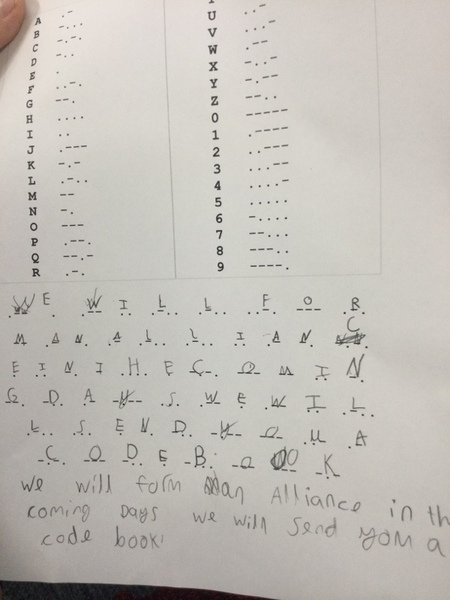 A .-
B -...
C -.-.
D -..
E .
F ..-.
G --.
H ....
I ..
J .---
K -.-
L .-..
M --
N -.
O ---
P .--.
Q --.-
R .-.
U ..-
V ...-
W .--
X -..-
Y -.--
Z --..
0 -----
1 .----
2 ..---
3 ...--
4 ....-
5 .....
6 -....
7 --...
8 ---..
9 ----.
W E W I L L F O R
M A N A L L I A N C
E I N I H E C O M I N
G D A Y S W E W I L
L S E N D Y O U A
C O D E B O O K
we will form an Alliance in th
coming Days we will send you a
code book